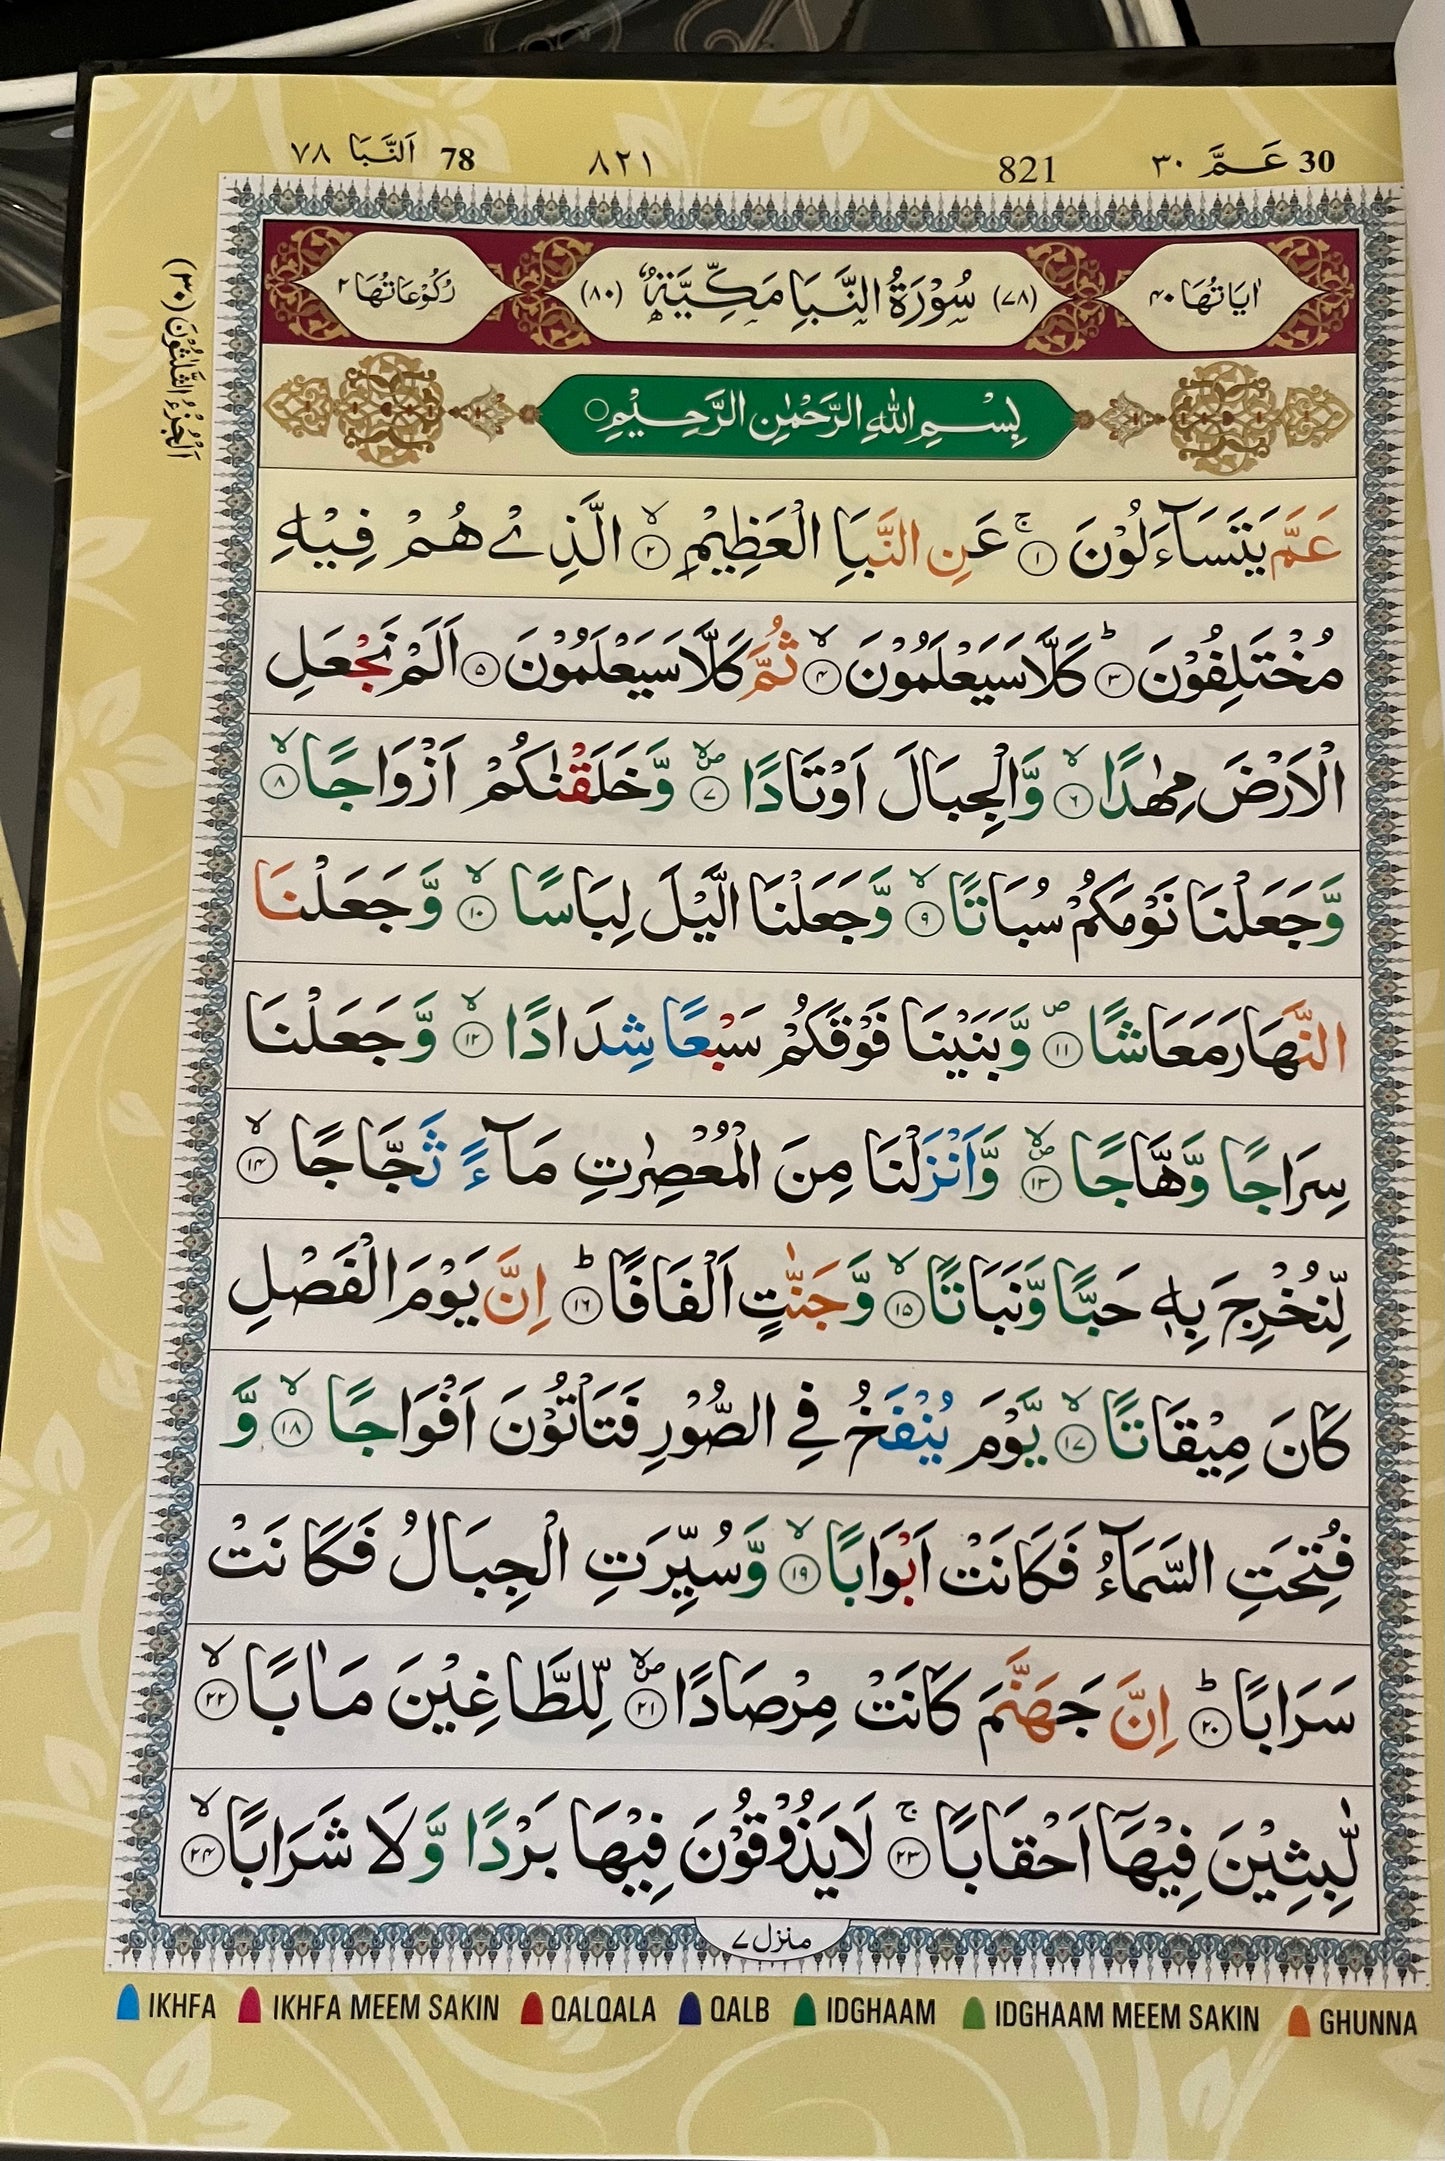 30 عَـمَّ ٣٠ 821 ٨٢١ 78 اَلنَّبَا ٧٨
اَلْجُزْءُ الثَّلٰثُوْنَ (٣٠)
اٰيَاتُهَا ٤٠ (٧٨) سُوْرَةُ النَّبَاِ مَكِّيَّةٌ (٨٠) رُكُوْعَاتُهَا ٢
بِسْمِ اللّٰهِ الرَّحْمٰنِ الرَّحِيْمِ ○
عَمَّ يَتَسَآءَلُوْنَ ۚ ١ عَنِ النَّبَاِ الْعَظِيْمِ ۙ ٢ الَّذِىْ هُمْ فِيْهِ
مُخْتَلِفُوْنَ ؕ ٣ كَلَّا سَيَعْلَمُوْنَ ۙ ٤ ثُمَّ كَلَّا سَيَعْلَمُوْنَ ٥ اَلَمْ نَجْعَلِ
الْاَرْضَ مِهٰدًا ۙ ٦ وَّالْجِبَالَ اَوْتَادًا ۪ۙ ٧ وَّخَلَقْنٰكُمْ اَزْوَاجًا ۙ ٨
وَّجَعَلْنَا نَوْمَكُمْ سُبَاتًا ۙ ٩ وَّجَعَلْنَا الَّيْلَ لِبَاسًا ۙ ١٠ وَّجَعَلْنَا
النَّهَارَ مَعَاشًا ۪ ١١ وَّبَنَيْنَا فَوْقَكُمْ سَبْعًا شِدَادًا ۙ ١٢ وَّجَعَلْنَا
سِرَاجًا وَّهَّاجًا ۪ۙ ١٣ وَّاَنْزَلْنَا مِنَ الْمُعْصِرٰتِ مَآءً ثَجَّاجًا ۙ ١٤
لِّنُخْرِجَ بِهٖ حَبًّا وَّنَبَاتًا ۙ ١٥ وَّجَنّٰتٍ اَلْفَافًا ؕ ١٦ اِنَّ يَوْمَ الْفَصْلِ
كَانَ مِيْقَاتًا ۙ ١٧ يَّوْمَ يُنْفَخُ فِى الصُّوْرِ فَتَاْتُوْنَ اَفْوَاجًا ۙ ١٨ وَّ
فُتِحَتِ السَّمَآءُ فَكَانَتْ اَبْوَابًا ۙ ١٩ وَّسُيِّرَتِ الْجِبَالُ فَكَانَتْ
سَرَابًا ؕ ٢٠ اِنَّ جَهَنَّمَ كَانَتْ مِرْصَادًا ۪ۙ ٢١ لِّلطَّاغِيْنَ مَاٰبًا ۙ ٢٢
لّٰبِثِيْنَ فِيْهَآ اَحْقَابًا ۚ ٢٣ لَا يَذُوْقُوْنَ فِيْهَا بَرْدًا وَّلَا شَرَابًا ۙ ٢٤
منزل ٧
IKHFA IKHFA MEEM SAKIN QALQALA QALB IDGHAAM IDGHAAM MEEM SAKIN GHUNNA